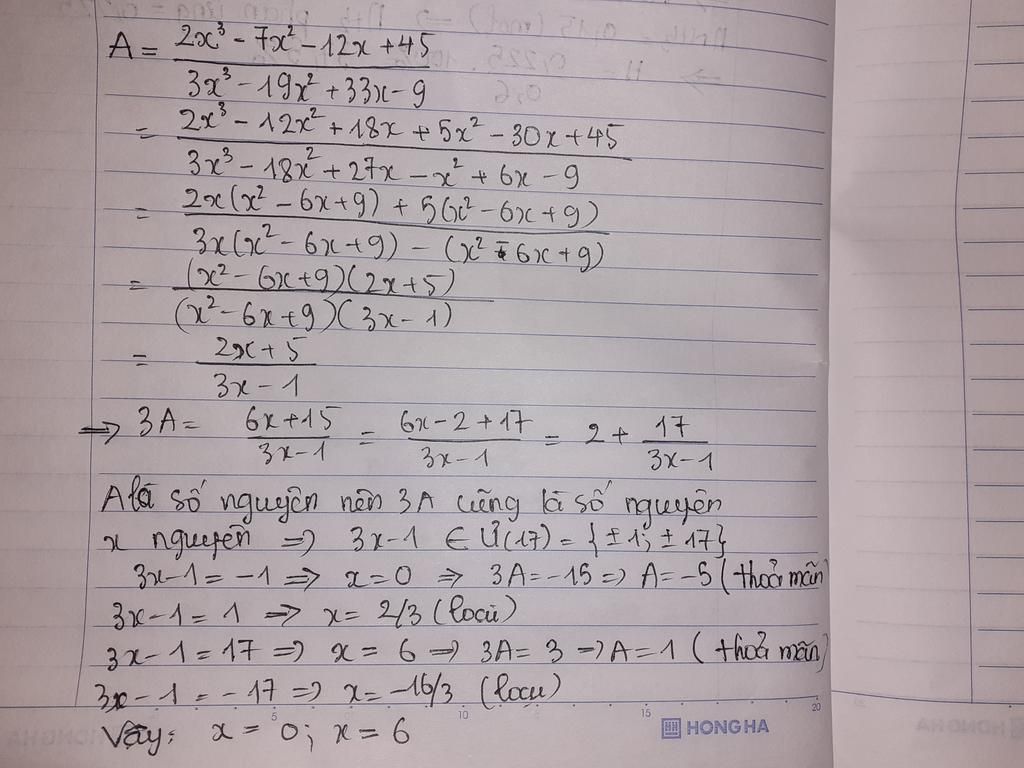 A = (2x³ - 7x² - 12x + 45)/(3x³ - 19x² + 33x - 9)
= (2x³ - 12x² + 18x + 5x² - 30x + 45)/(3x³ - 18x² + 27x - x² + 6x - 9)
= (2x(x² - 6x + 9) + 5(x² - 6x + 9))/(3x(x² - 6x + 9) - (x² - 6x + 9))
= ((x² - 6x + 9)(2x + 5))/((x² - 6x + 9)(3x - 1))
= (2x + 5)/(3x - 1)
=> 3A = (6x + 15)/(3x - 1) = (6x - 2 + 17)/(3x - 1) = 2 + 17/(3x - 1)
A là số nguyên nên 3A cũng là số nguyên
x nguyên => 3x - 1 ∈ Ư(17) = {±1; ±17}
3x - 1 = -1 => x = 0 => 3A = -15 => A = -5 (thoả mãn)
3x - 1 = 1 => x = 2/3 (loại)
3x - 1 = 17 => x = 6 => 3A = 3 => A = 1 (thoả mãn)
3x - 1 = -17 => x = -16/3 (loại)
5 10 15 20
Vậy: x = 0; x = 6
HONG HA